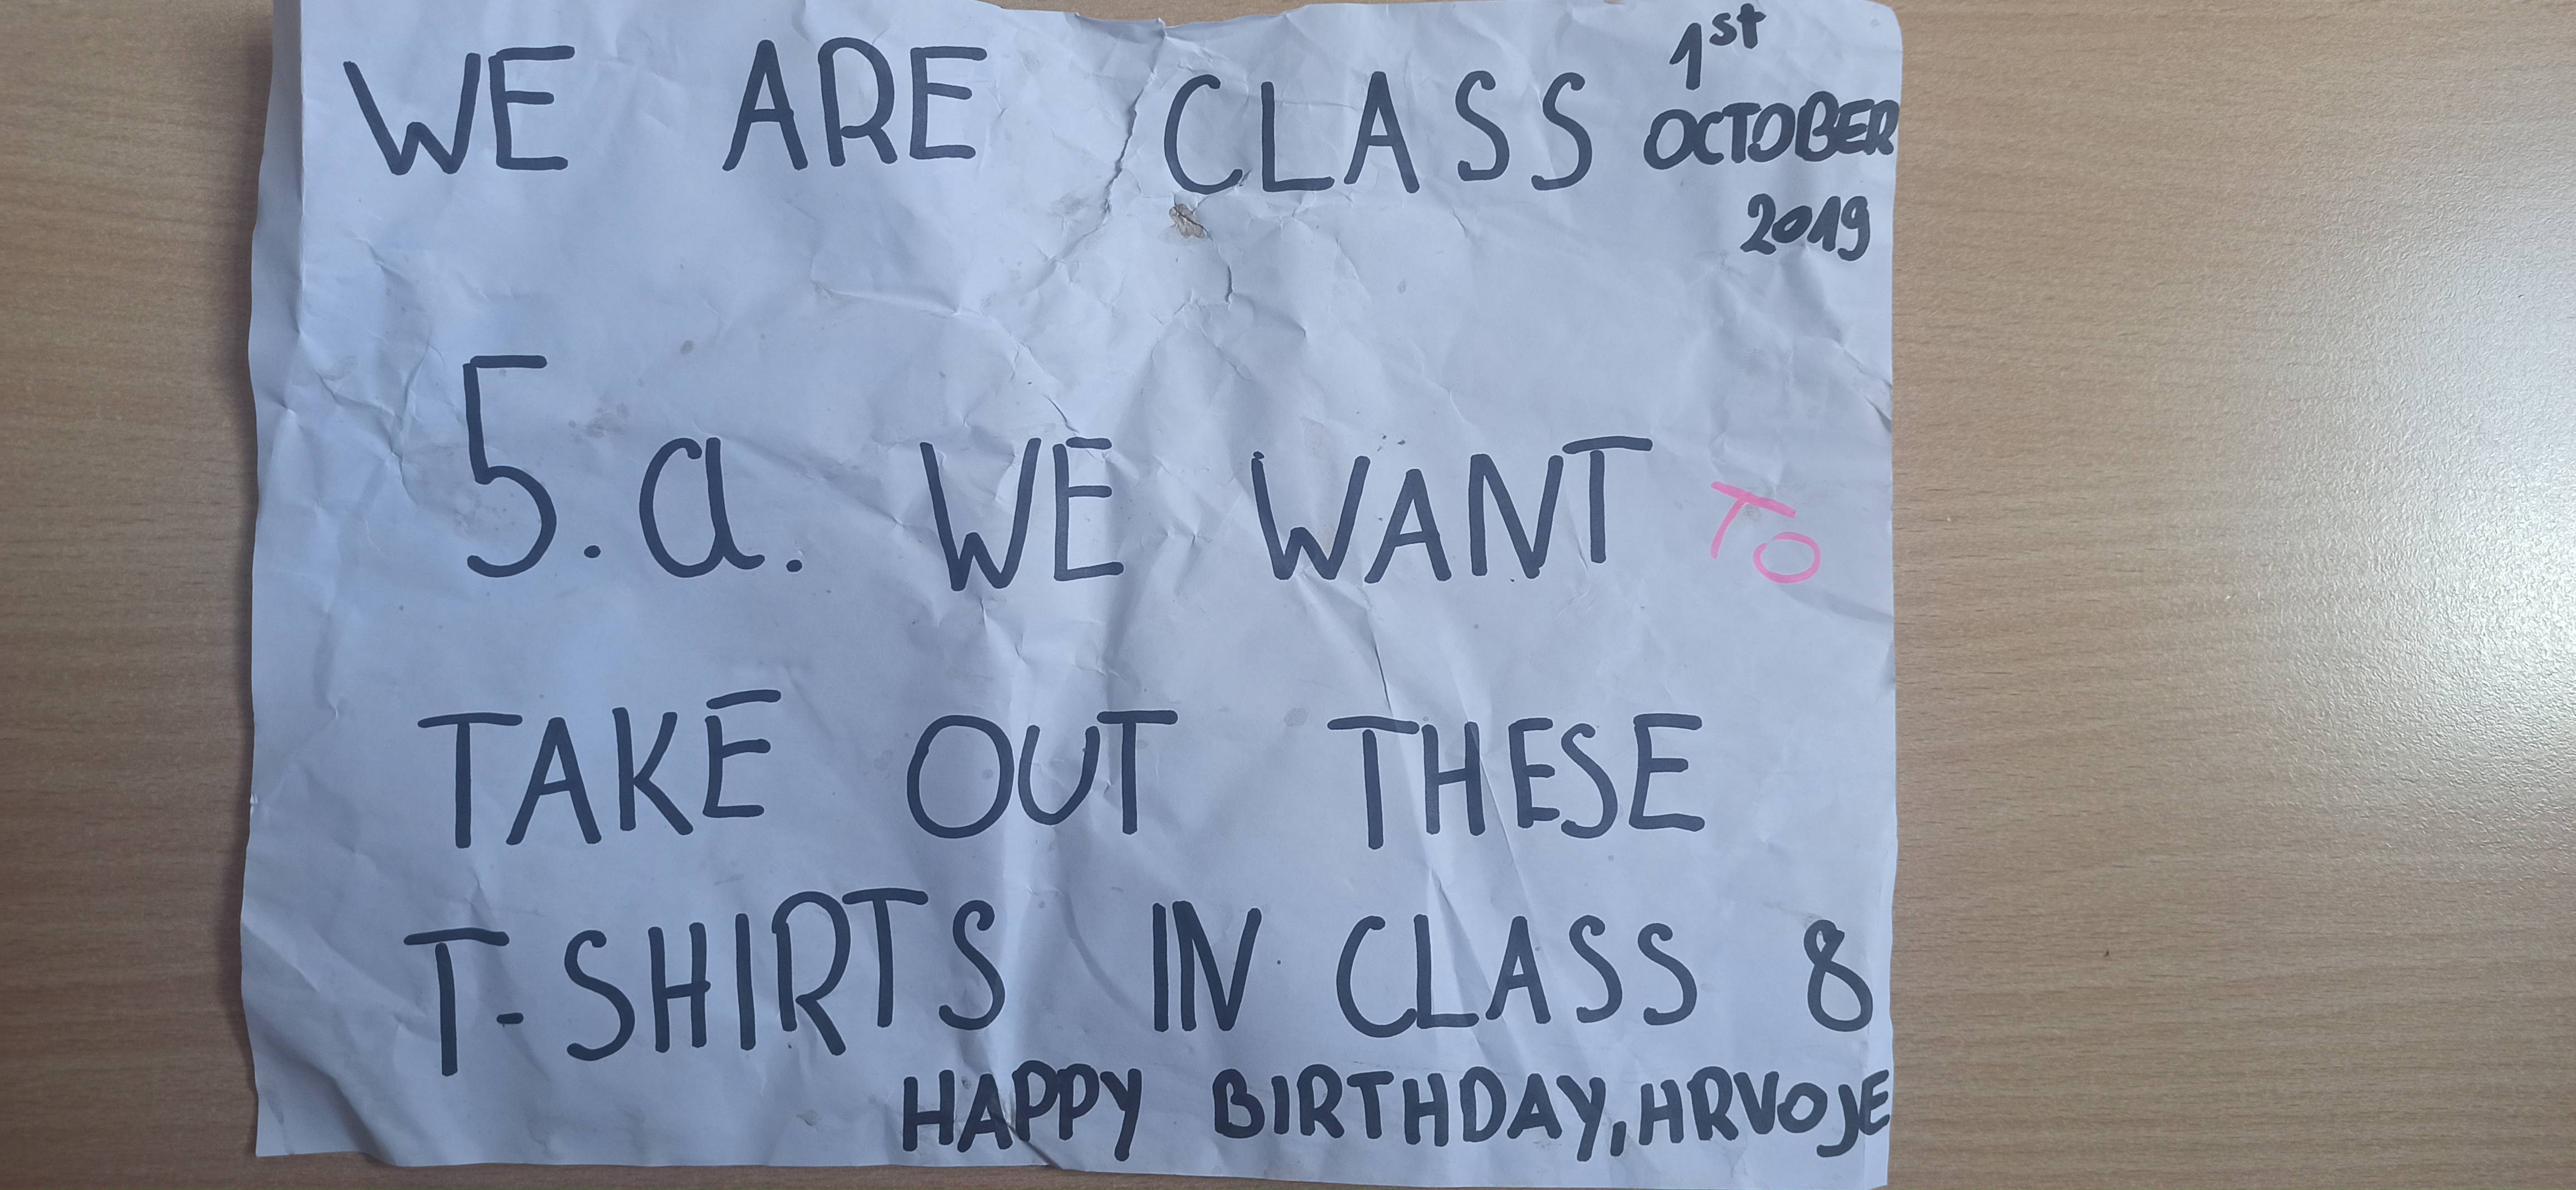 WE ARE CLASS
1st
OCTOBER
2019
5.a. WE WANT TO
TAKE OUT THESE
T-SHIRTS IN CLASS 8
HAPPY BIRTHDAY, HRVOJE